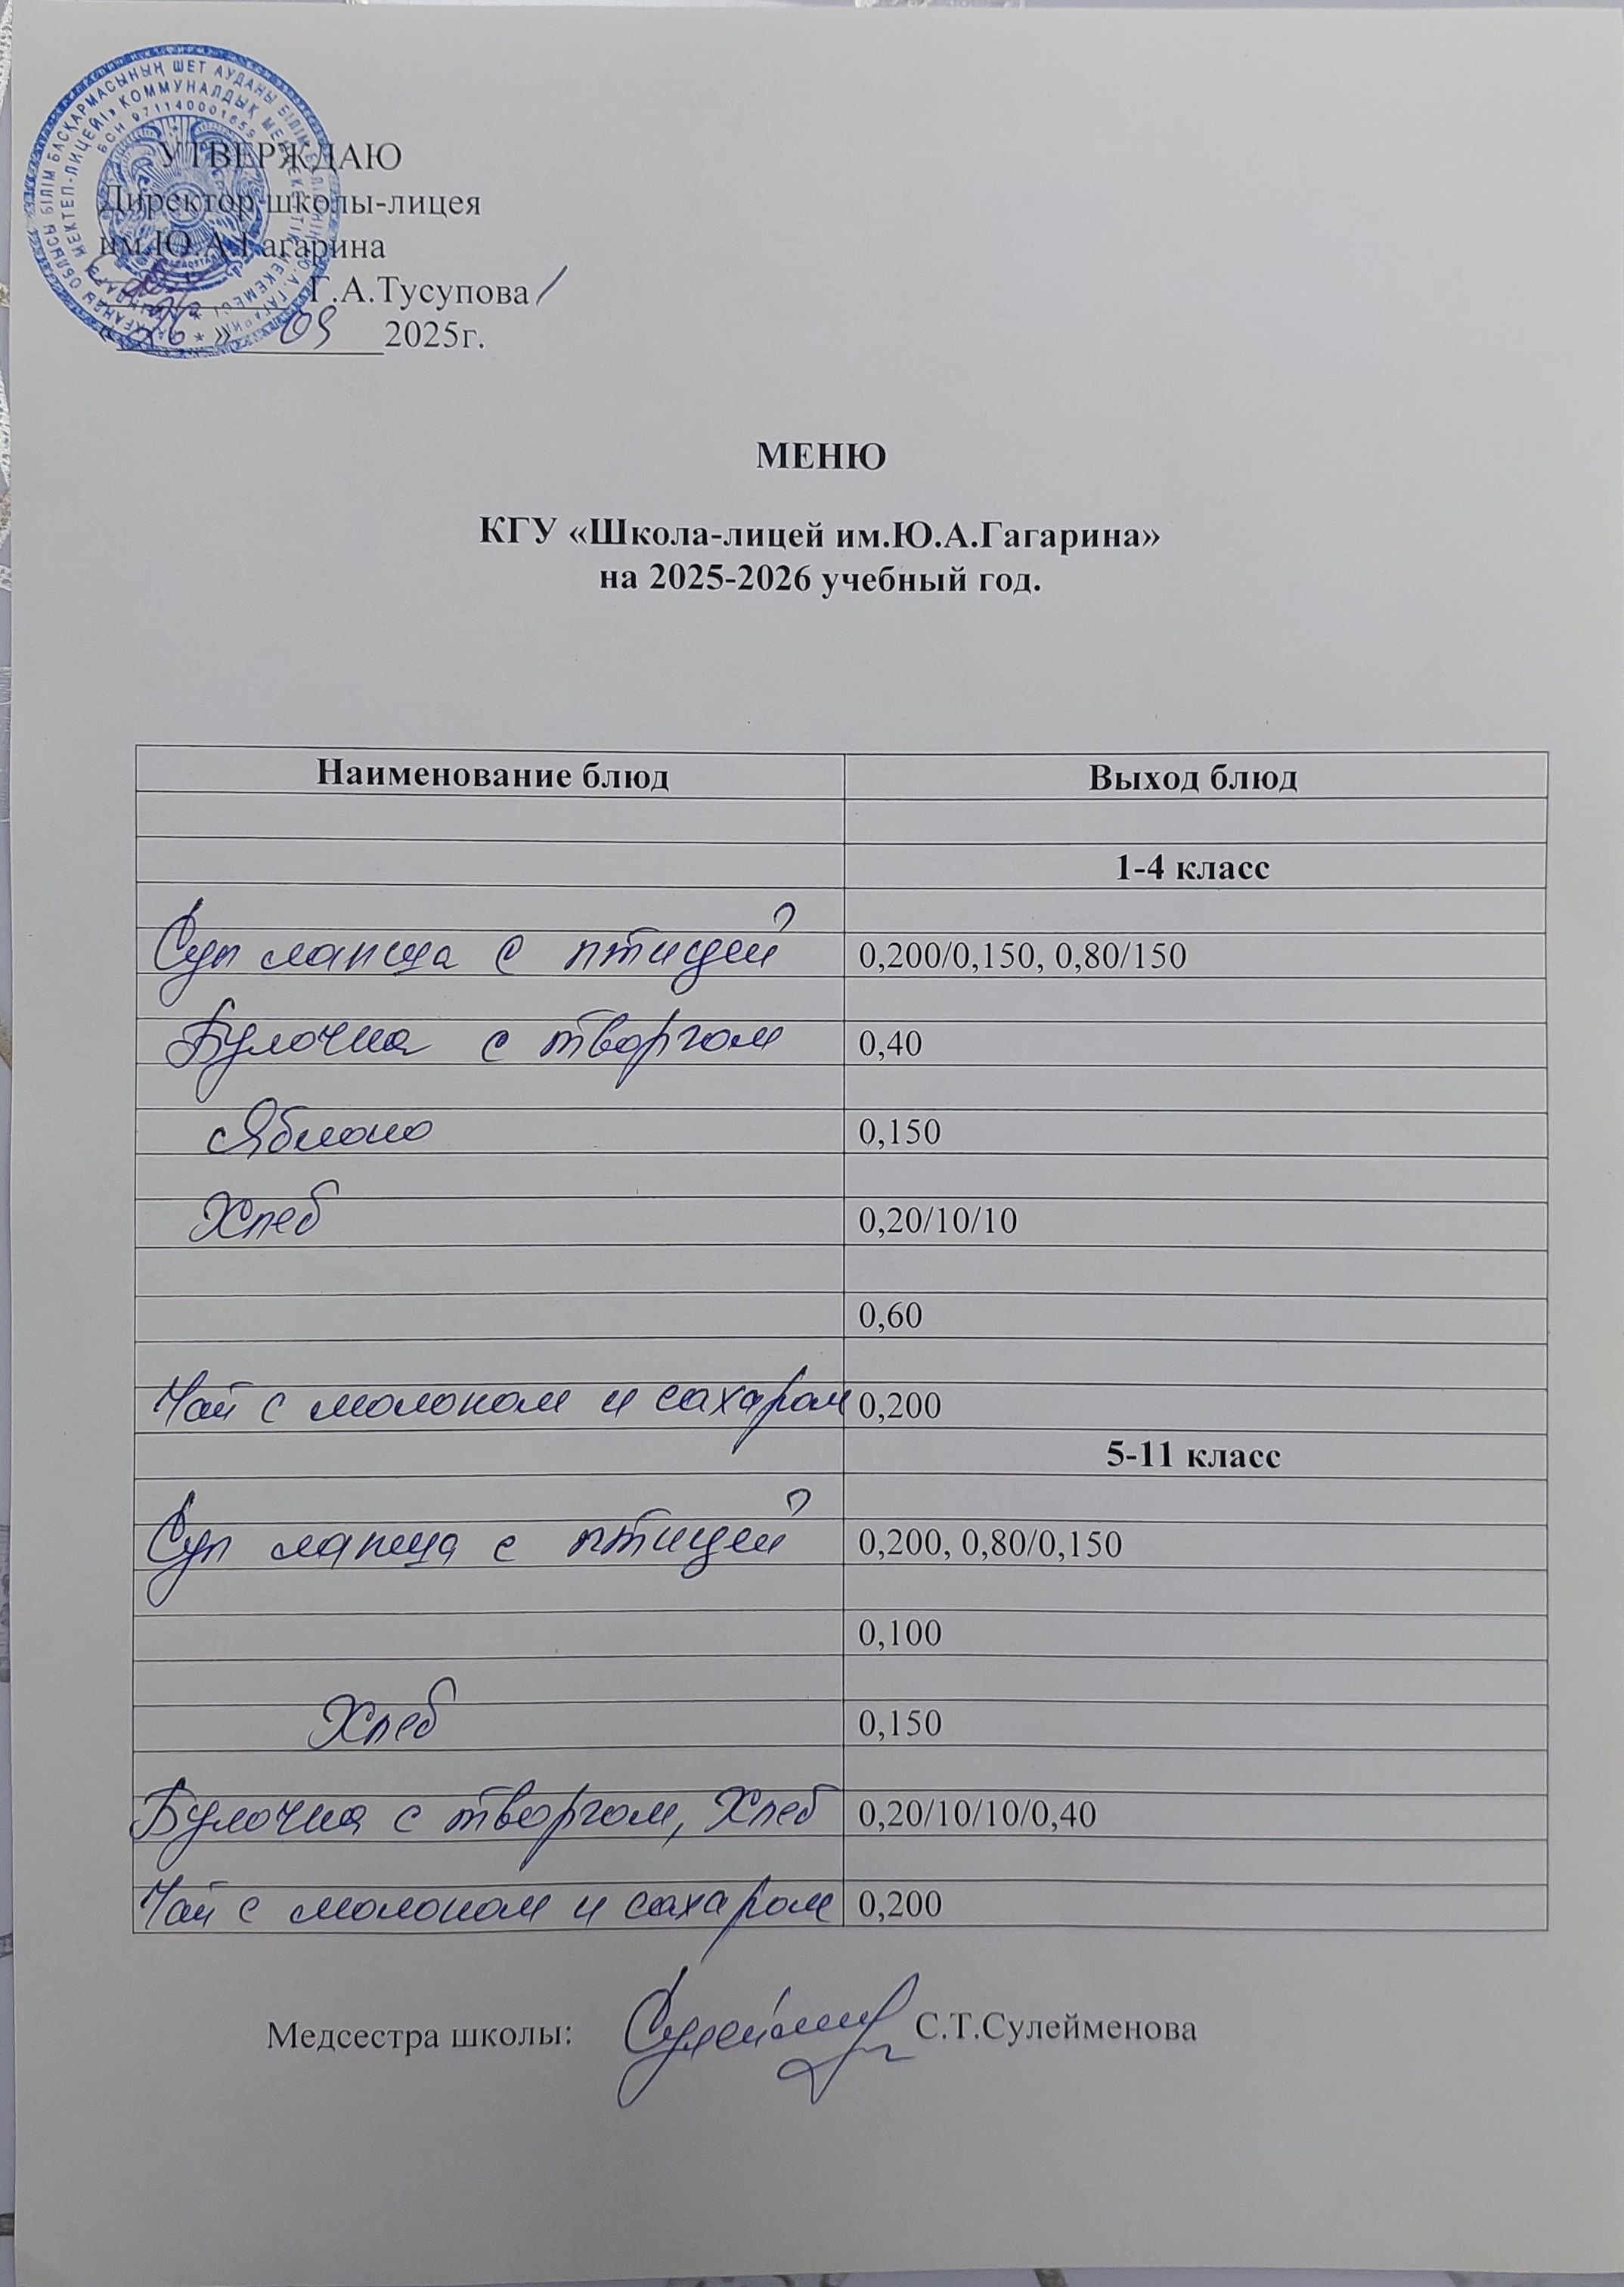 УТВЕРЖДАЮ
Директор школы-лицея
им.Ю.А.Гагарина
Г.А.Тусупова
«26» 09 2025г.
МЕНЮ
КГУ «Школа-лицей им.Ю.А.Гагарина»
на 2025-2026 учебный год.
Наименование блюд Выход блюд
1-4 класс
Суп лапша с птицей 0,200/0,150, 0,80/150
Булочка с творгом 0,40
Яблоко 0,150
Хлеб 0,20/10/10
0,60
Чай с молоком и сахаром 0,200
5-11 класс
Суп лапша с птицей 0,200, 0,80/0,150
0,100
Хлеб 0,150
Булочка с творгом, Хлеб 0,20/10/10/0,40
Чай с молоком и сахаром 0,200
Медсестра школы: С.Т.Сулейменова